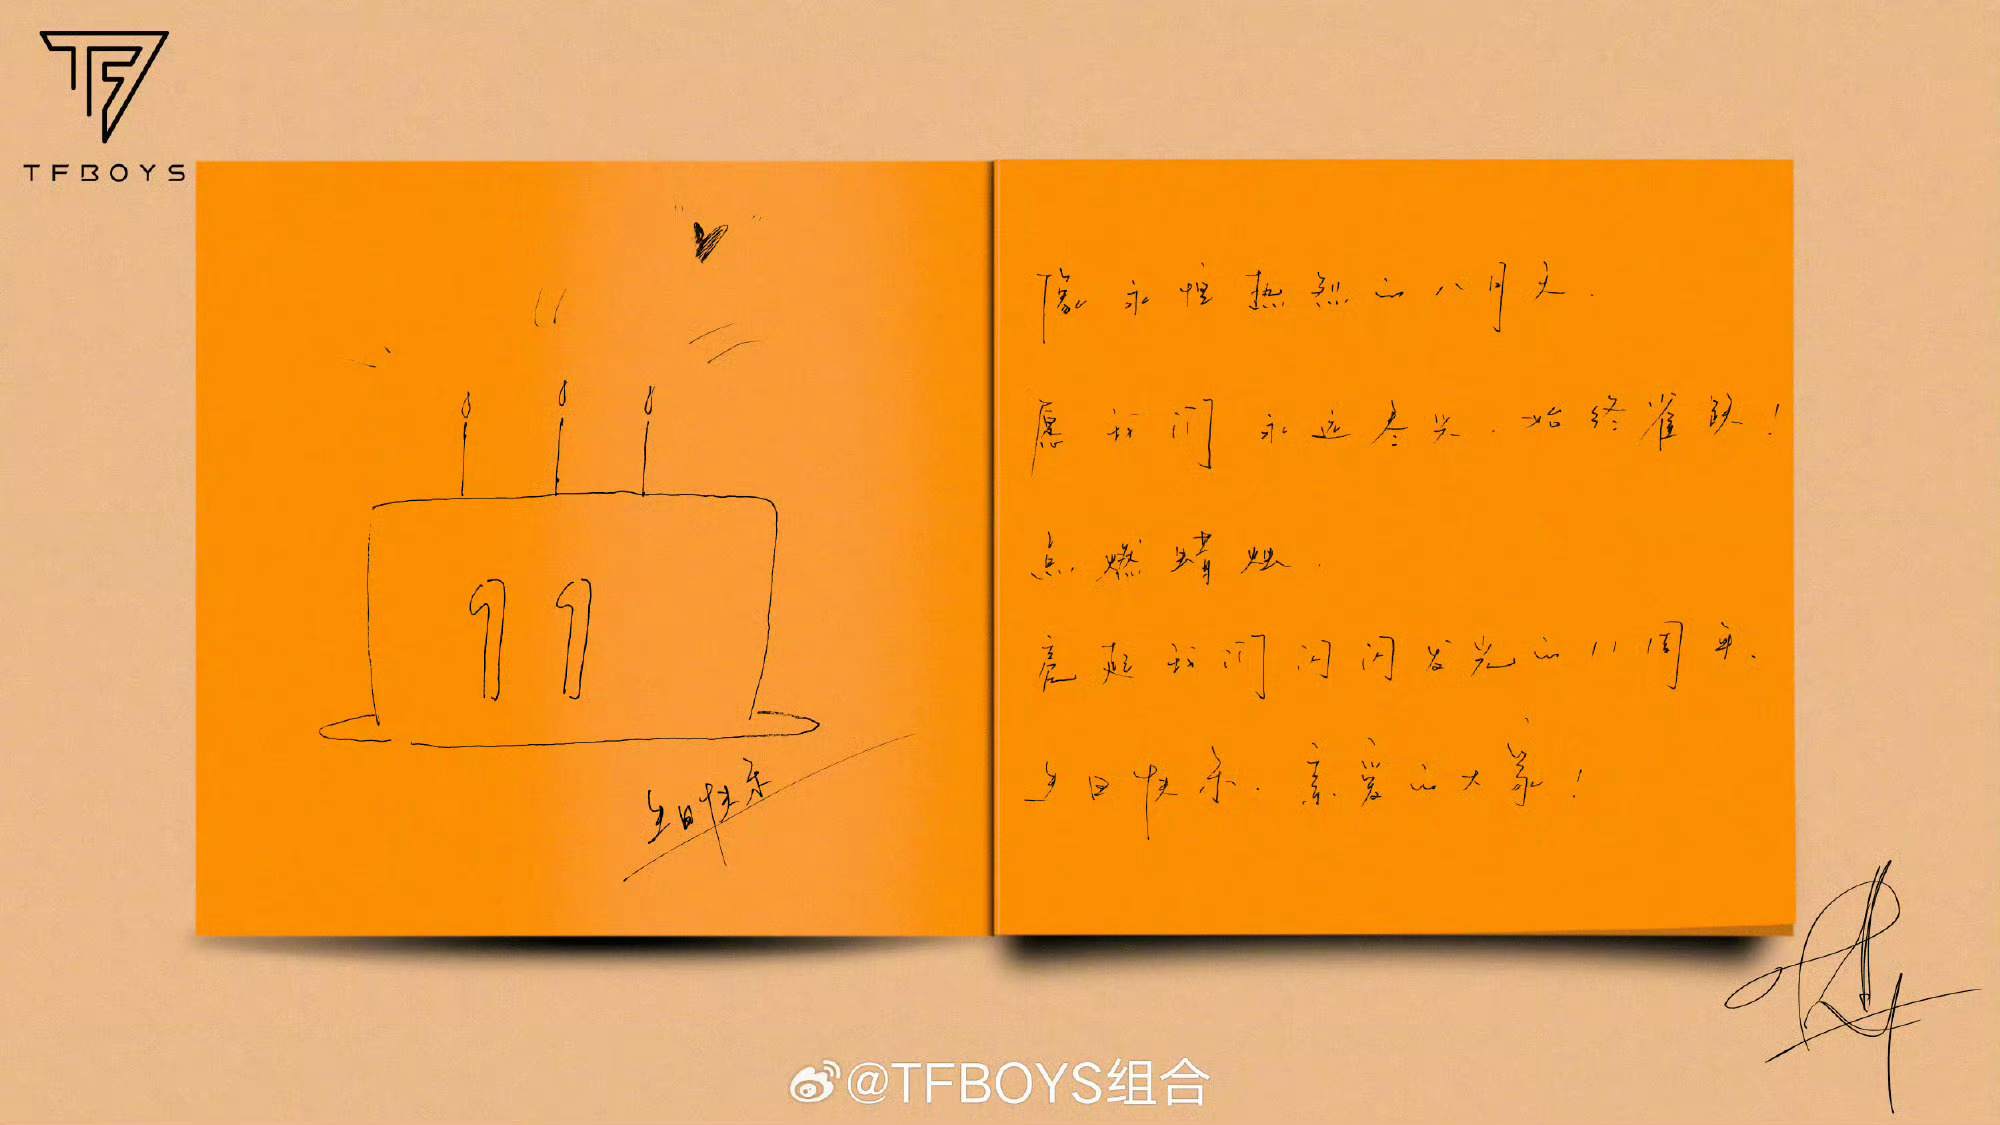 TFBOYS
11
生日快乐
像永恒热烈的八月天.
愿我们永远尽兴.始终雀跃!
点燃蜡烛.
亮起我们闪闪发光的11周年.
生日快乐.亲爱的大家!
@TFBOYS组合